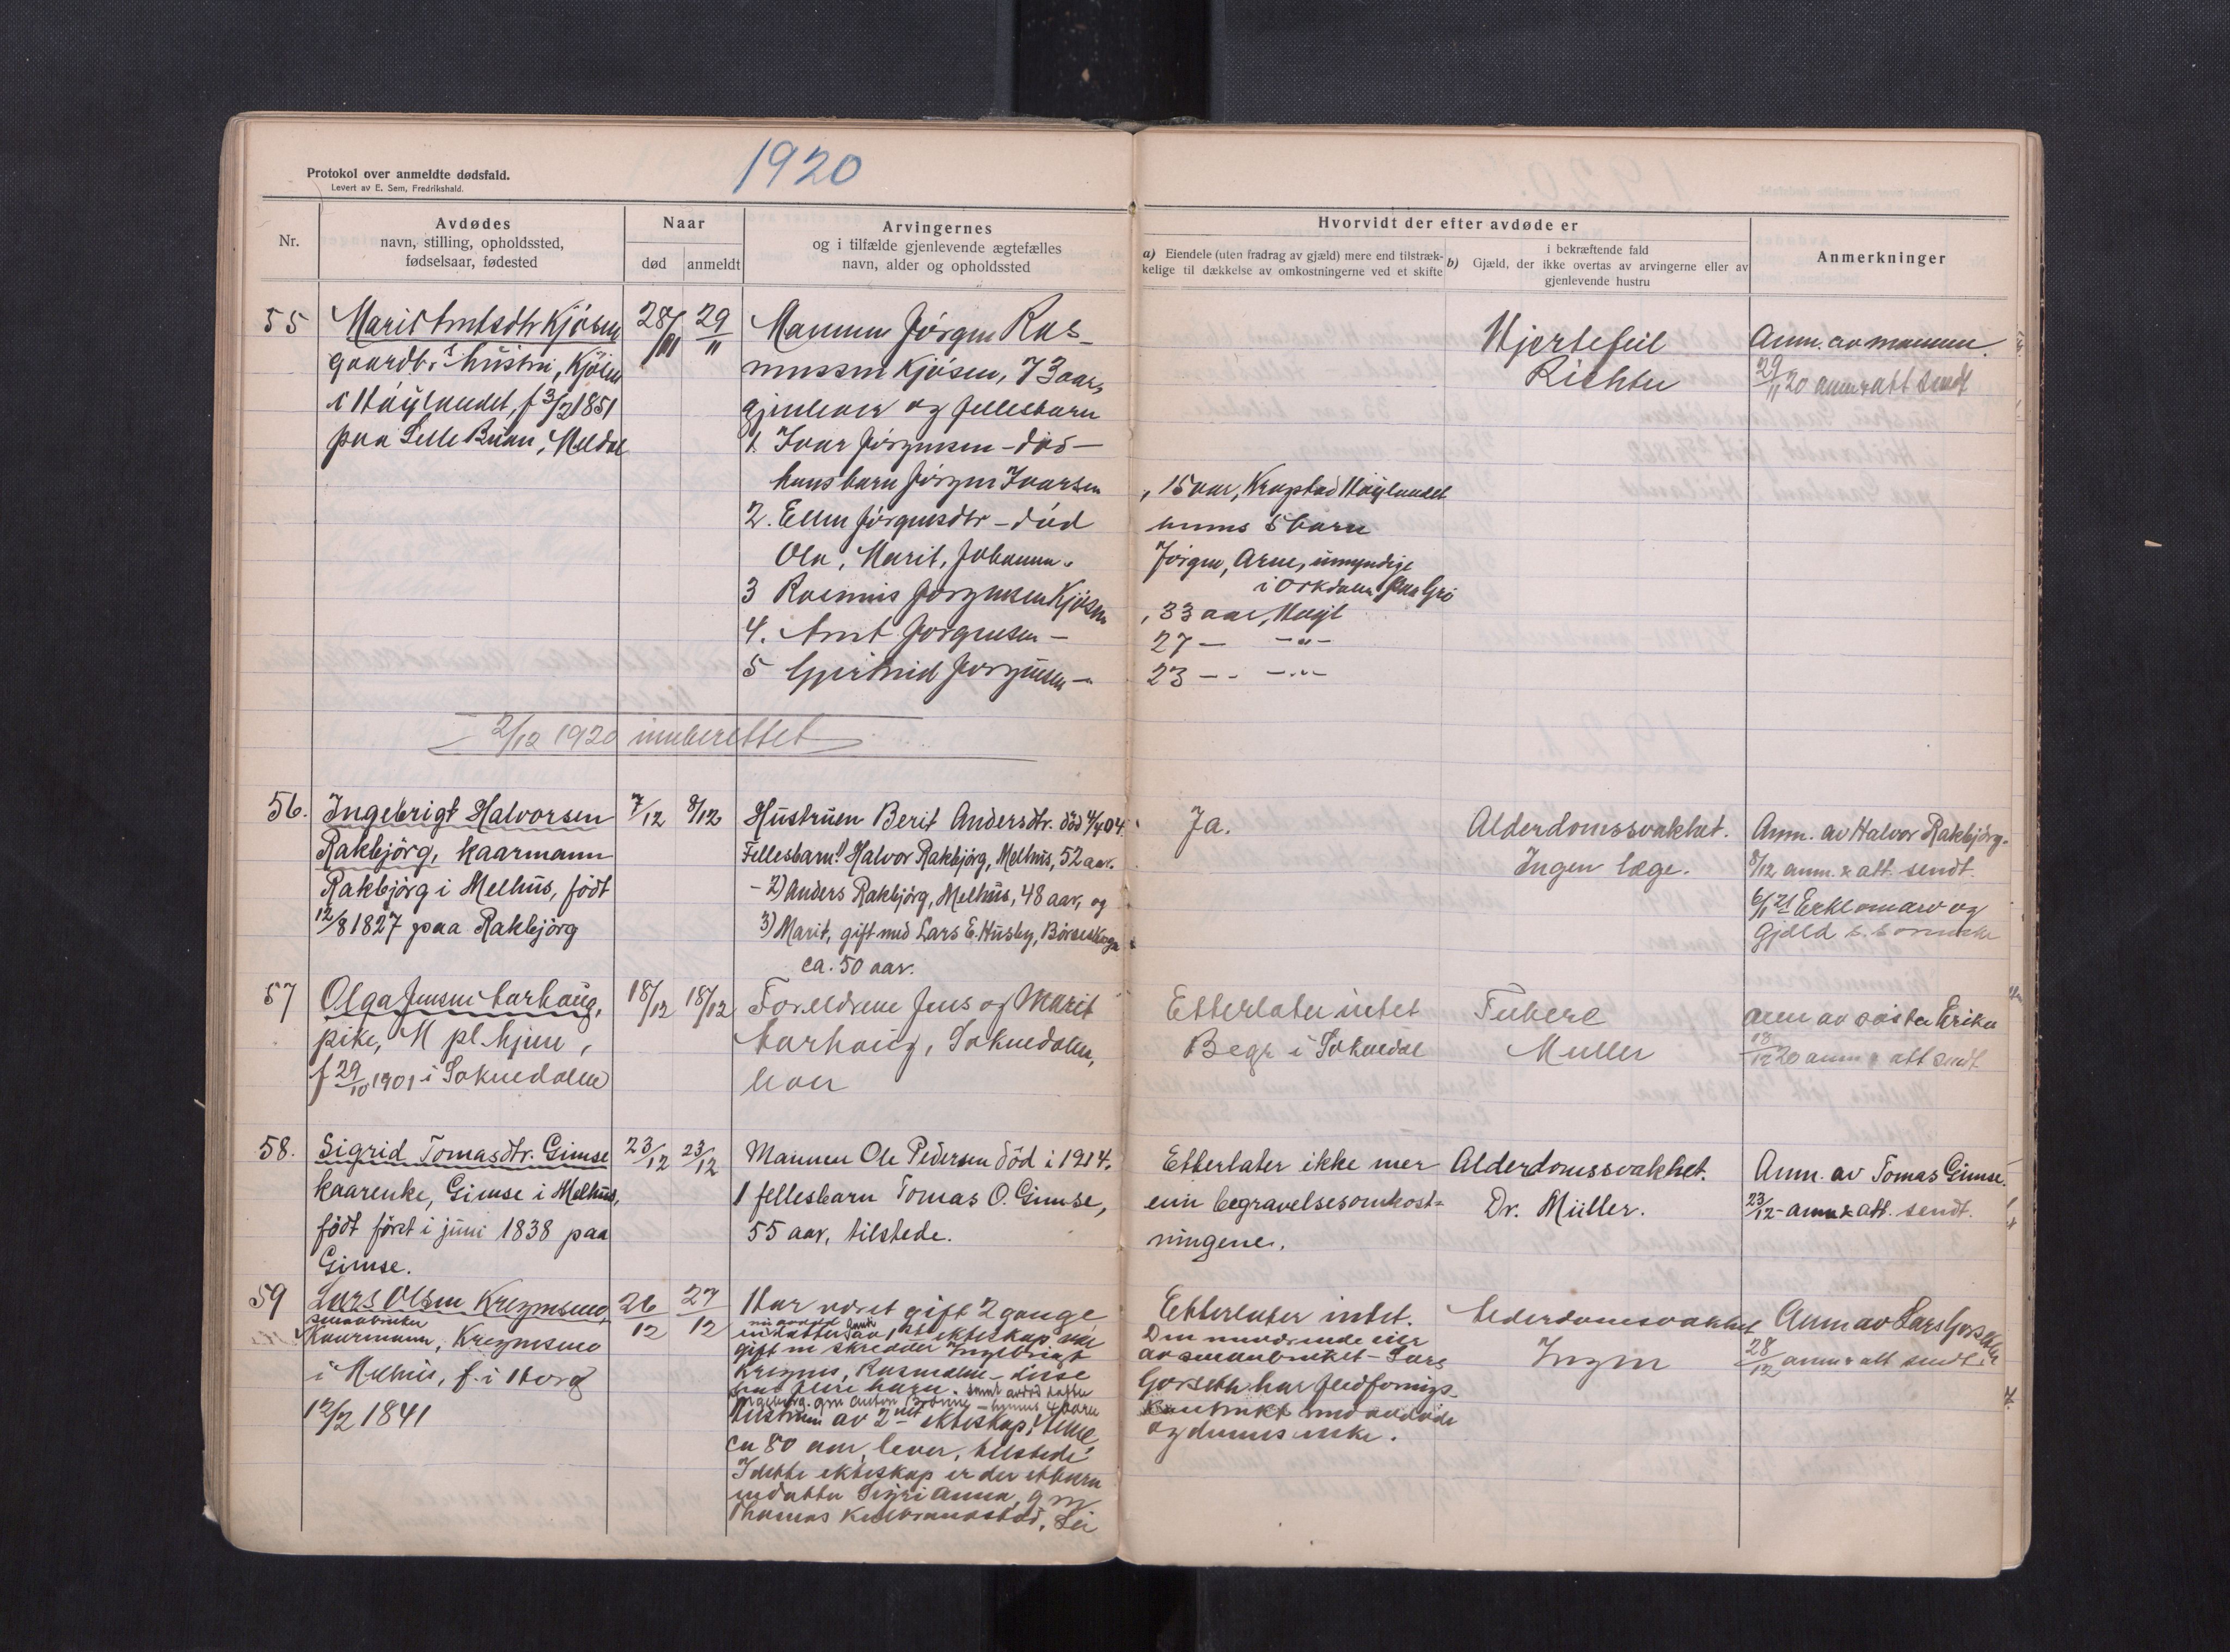 1920
Protokol over anmeldte dødsfald.
Levert av E. Sem, Fredrikshald.
Nr.
Avdødes
navn, stilling, opholdssted,
fødselsaar, fødested
Naar
død
anmeldt
Arvingernes
og i tilfælde gjenlevende ægtefælles
navn, alder og opholdssted
Hvorvidt der efter avdøde er
a) Eiendele (uten fradrag av gjæld) mere end tilstræk-
kelige til dækkelse av omkostningerne ved et skifte
b) Gjæld, der
i bekræftende fald
ikke overtas av arvingerne eller av
gjenlevende hustru
Anmerkninger
55
Marit Arntsdtr Kjösen
gaardbr.s hustru, Kjösen
i Höylandet, f 3/2 1851
paa Lille Buan, Meldal
28/11
29/11
Mannen Jörgen Ras-
mussen Kjösen, 73 aar,
gjenlever og fellesbarn
1. Ivar Jörgensen - död -
hans barn Jörgen Ivarsen
, 15 aar, Krogstad Höylandet
2. Ellen Jörgensdtr - död
hennes 5 barn
Ola, Marit, Johanna,
Jörgen, Arne, umyndige
i Orkdalen
3 Rasmus Jörgensen Kjösen
, 33 aar, Höyl
4. Arnt Jörgensen -
27 - -"-
5 Gjertrud Jörgensen -
23 - - -"-
Hjertefeil
Richter
Anm. av mannen.
29/11 20 anm & att sendt
2/12 1920 innberettet
56.
Ingebrigt Halvorsen
Rakbjörg, kaarmann
Rakbjörg i Melhus, födt
12/8 1827 paa Rakbjörg
7/12
8/12
Hustruen Berit Andersdtr. död 4/4 04.
Fellesbarn: 1) Halvor Rakbjörg, Melhus, 52 aar.
- 2) Anders Rakbjörg, Melhus, 48 aar, og
3) Marit, gift med Lars E. Husby, Börseskogn
ca. 50 aar.
Ja.
Alderdomssvakhet.
Ingen læge.
Anm. av Halvor Rakbjörg.
8/12 anm. & att. sendt.
6/1 21 Erkl om arv og
gjæld
57
Olga Jensen
pike, M pl.hjem,
f 29/10 1901 i Soknedalen
18/12
18/12
Foreldrene Jens og Marit
Soknedalen,
lever
Etterlater intet
Begr i Soknedal
Tuberk
Müller
anm av söster Erika
18/12 20 anm & att sendt
58.
Sigrid Tomasdtr. Gimse
kaarenke, Gimse i Melhus,
födt först i juni 1838 paa
Gimse.
23/12
23/12
Mannen Ole Pedersen död i 1914.
1 fellesbarn Tomas O. Gimse,
55 aar, tilstede.
Etterlater ikke mer
enn begravelsesomkost-
ningene.
Alderdomssvakhet.
Dr. Müller.
Anm. av Tomas Gimse.
23/12 - anm & att. sendt.
59
Lars Olsen Kregnesmo,
smaabruker
Kaarmann, Kregnesmo
i Melhus, f. i Horg
12/2 1841
26/12
27/12
Har været gift 2 gange
en datter av 1st ekteskap
gift m skredder Ingebrigt
flere barn. samt avdöd datter
Ingeborg. gm Anton - hennes 4 barn
Hustruen av 2net ekteskap:
ca 80 aar, lever, tilstede
I dette ekteskap er der ett barn
en datter Sigri Anna, g m
Thomas
Etterlater intet.
Den nuværende eier
av smaabruket - Lars
har
kontrakt med avdöde
og dennes enke.
Alderdomssvakhet
Ingen
Anm av Lars
28/12 anm & att sendt.